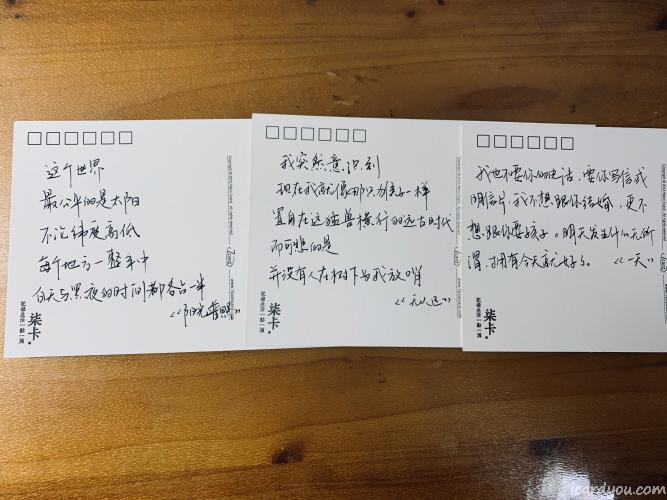 这个世界
最公平的是太阳
不论纬度高低
每个地方一整年中
白天与黑夜的时间都各占一半
《阳光普照》
柒卡
记录生活一点一滴
我突然意识到
现在我就像那只猴子一样
置身在这猛兽横行的远古时代
而可悲的是
并没有人在树下为我放哨
《无人区》
柒卡
记录生活一点一滴
我也不要你的电话,要你写信或
明信片。我不想跟你结婚,更不
想跟你要孩子。明天发生什么无所
谓,拥有今天就好了。《一天》
柒卡
记录生活一点一滴
icardyou.com